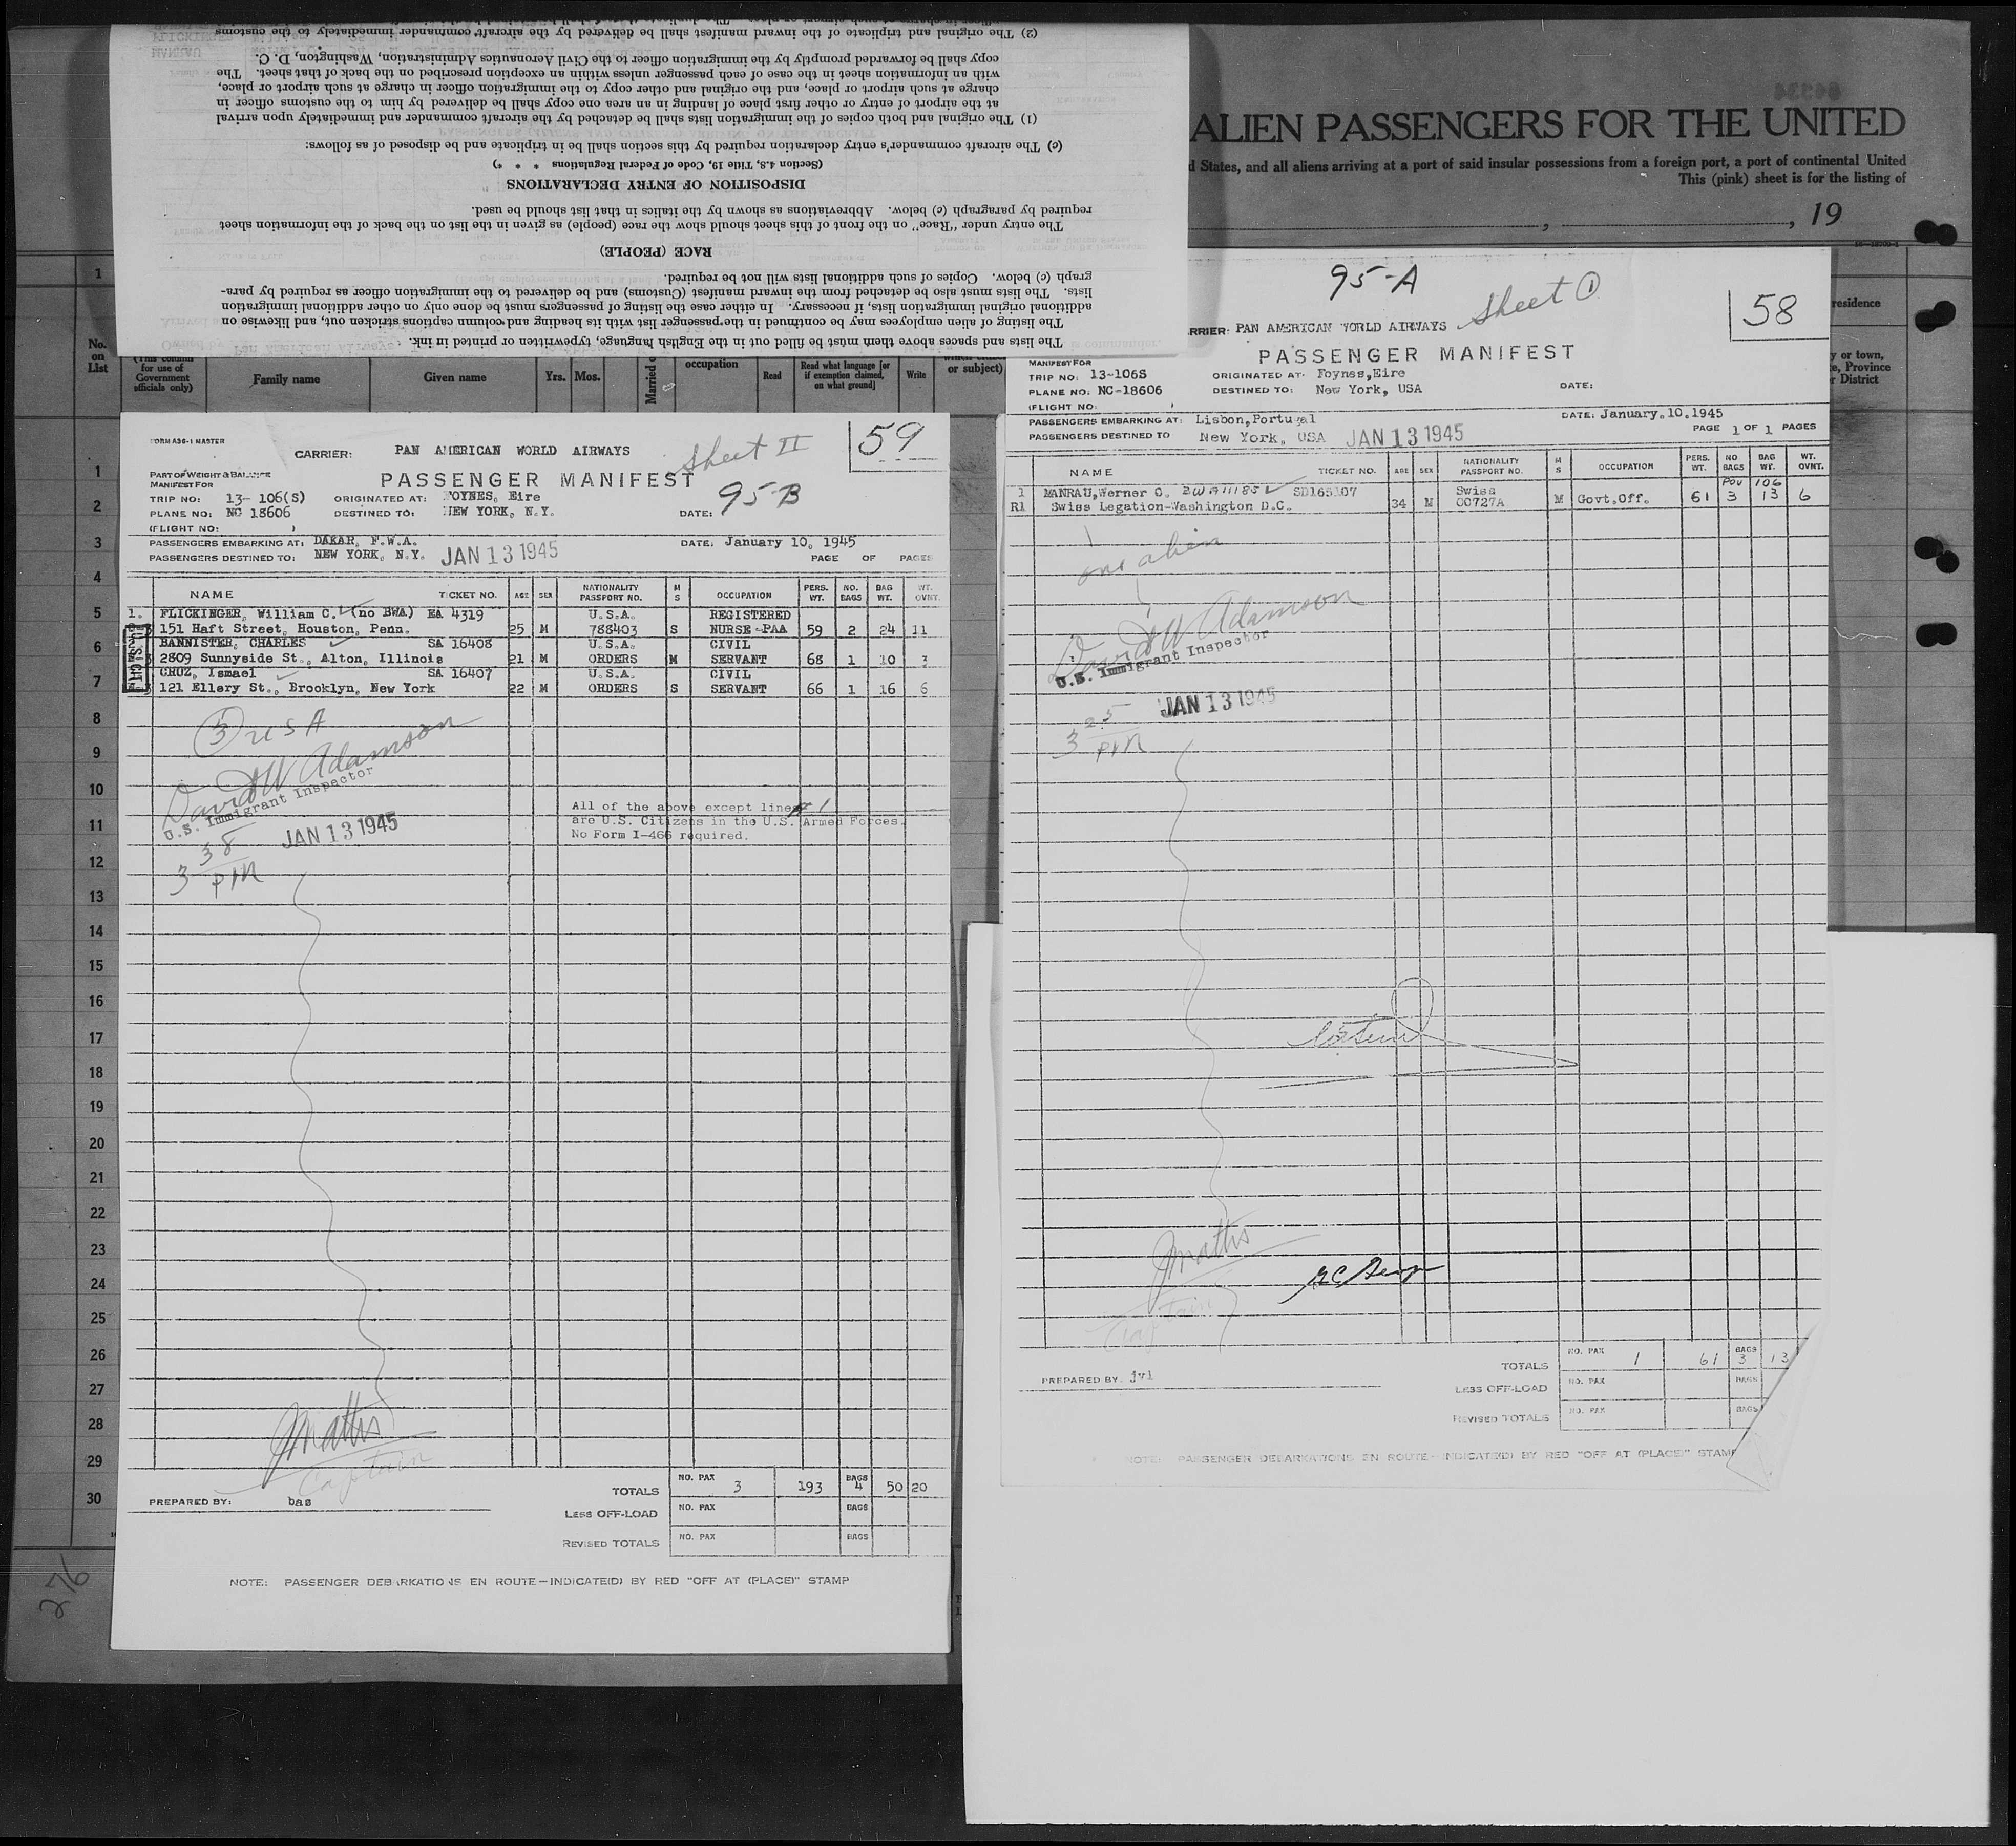 (2) The original and triplicate of the inward manifest shall be delivered by the aircraft commander immediately to the customs
copy shall be forwarded promptly by the immigration officer to the Civil Aeronautics Administration, Washington, D. C.
with an information sheet in the case of each passenger unless within an exception prescribed on the back of that sheet. The
charge at such airport or place, and the original and other copy to the immigration officer in charge at such airport or place,
at the airport of entry or other first place of landing in an area one copy shall be delivered by him to the customs officer in
(1) The original and both copies of the immigration lists shall be detached by the aircraft commander and immediately upon arrival
(c) The aircraft commander's entry declaration required by this section shall be in triplicate and be disposed of as follows:
(Section 4.8, Title 19, Code of Federal Regulations * * *)
DISPOSITION OF ENTRY DECLARATIONS
required by paragraph (c) below. Abbreviations as shown by the italics in that list should be used.
The entry under "Race" on the front of this sheet should show the race (people) as given in the list on the back of the information sheet
RACE (PEOPLE)
graph (c) below. Copies of such additional lists will not be required.
lists. The lists must also be detached from the inward manifest (Customs) and be delivered to the immigration officer as required by para-
additional original immigration lists, if necessary. In either case the listing of passengers must be done only on other additional immigration
The listing of alien employees may be continued in the passenger list with its heading and column captions stricken out, and likewise on
The lists and spaces above them must be filled out in the English language, typewritten or printed in ink.
ALIEN PASSENGERS FOR THE UNITED
d States, and all aliens arriving at a port of said insular possessions from a foreign port, a port of continental United
This (pink) sheet is for the listing of
, , 19
1
residence
No.
on
List
(This column
for use of
Government
officials only)
Family name
Given name
Yrs. Mos.
Married o
occupation
Read
Read what language [or
if exemption claimed,
on what ground]
Write
or subject)
y or town,
e, Province
r District
FORM ADG-1 MASTER
CARRIER: PAN AMERICAN WORLD AIRWAYS
Sheet II
59
PART OF WEIGHT & BALANCE
MANIFEST FOR
PASSENGER MANIFEST
95-B
TRIP NO: 13- 106(S) ORIGINATED AT: FOYNES, Eire
PLANE NO: NC 18606 DESTINED TO: NEW YORK, N.Y. DATE:
(FLIGHT NO: )
PASSENGERS EMBARKING AT: DAKAR, F.W.A. DATE: January 10, 1945
PASSENGERS DESTINED TO: NEW YORK, N.Y. JAN 13 1945 PAGE OF PAGES
NAME TICKET NO. AGE SEX NATIONALITY PASSPORT NO. M S OCCUPATION PERS. WT. NO. BAGS BAG WT. WT. OVNT.
1. FLICKINGER, William C. (no BWA) EA 4319 U.S.A. REGISTERED
151 Haft Street, Houston, Penn. 25 M 788403 S NURSE-PAA 59 2 24 11
BANNISTER, CHARLES SA 16408 U.S.A. CIVIL
2809 Sunnyside St., Alton, Illinois 21 M ORDERS M SERVANT 68 1 10 3
CRUZ, Ismael SA 16407 U.S.A. CIVIL
121 Ellery St., Brooklyn, New York 22 M ORDERS S SERVANT 66 1 16 6
3 USA
David W Adamson
U.S. Immigrant Inspector
JAN 13 1945
3 38 PM
All of the above except line # 1
are U.S. Citizens in the U.S. Armed Forces.
No Form I-466 required.
1
2
3
4
5
6
7
8
9
10
11
12
13
14
15
16
17
18
19
20
21
22
23
24
25
26
27
28
29
30
JMathis
Captain
PREPARED BY: bas
TOTALS NO. PAX 3 193 BAGS 4 50 20
LESS OFF-LOAD NO. PAX BAGS
REVISED TOTALS NO. PAX BAGS
NOTE: PASSENGER DEBARKATIONS EN ROUTE—INDICATE(D) BY RED "OFF AT (PLACE)" STAMP
276
95-A
Sheet 1
58
RRIER: PAN AMERICAN WORLD AIRWAYS
PASSENGER MANIFEST
MANIFEST FOR
TRIP NO: 13-106S ORIGINATED AT: Foynes, Eire
PLANE NO: NC-18606 DESTINED TO: New York, USA DATE:
(FLIGHT NO: )
PASSENGERS EMBARKING AT: Lisbon, Portugal DATE: January.10.1945
PASSENGERS DESTINED TO New York, USA JAN 13 1945 PAGE 1 OF 1 PAGES
NAME TICKET NO. AGE SEX NATIONALITY PASSPORT NO. M S OCCUPATION PERS. WT. NO BAGS BAG WT. WT. OVNT.
1 MANRAU, Werner C. BWA 111185 SD165107 Swiss POU 106
R1 Swiss Legation-Washington D.C. 34 M 00727A M Govt.Off. 61 3 13 6
one alien
David W Adamson
U.S. Immigrant Inspector
JAN 13 1945
3 25 PM
JMathis
Captain
PREPARED BY: jvl
TOTALS NO. PAX 1 61 BAGS 3 13
LESS OFF-LOAD NO. PAX BAGS
REVISED TOTALS NO. PAX BAGS
NOTE: PASSENGER DEBARKATIONS EN ROUTE—INDICATE(D) BY RED "OFF AT (PLACE)" STAMP